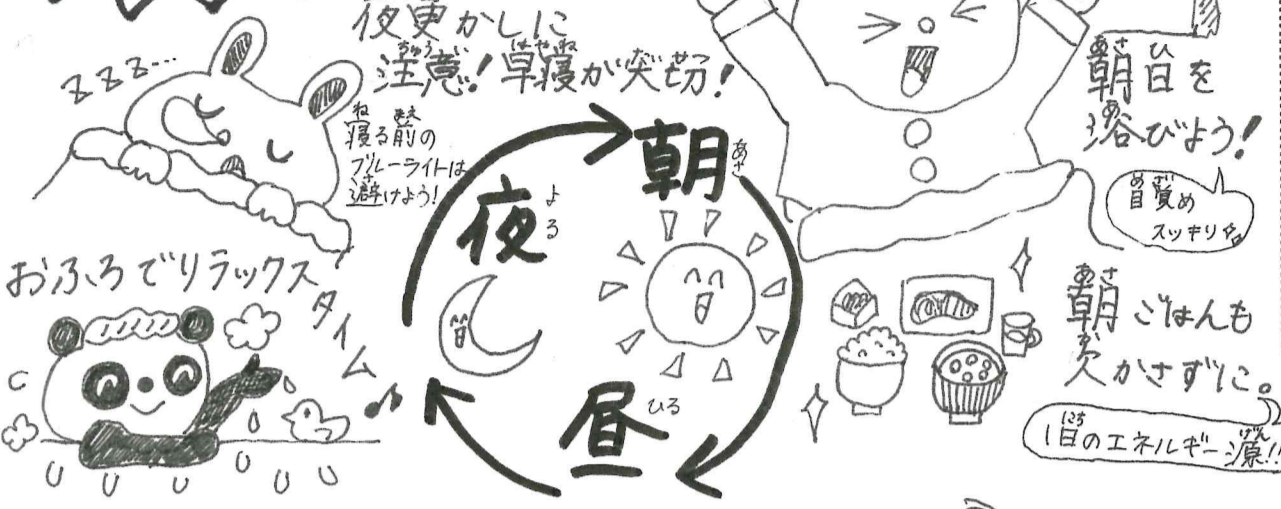 夜更かしに
注意!早寝が大切!
zzz...
寝る前の
ブルーライトは
避けよう!
おふろでリラックス
タイム♪
朝
夜
昼
朝日を
浴びよう!
目覚め
スッキリ
朝ごはんも
欠かさずに。
1日のエネルギー源!!